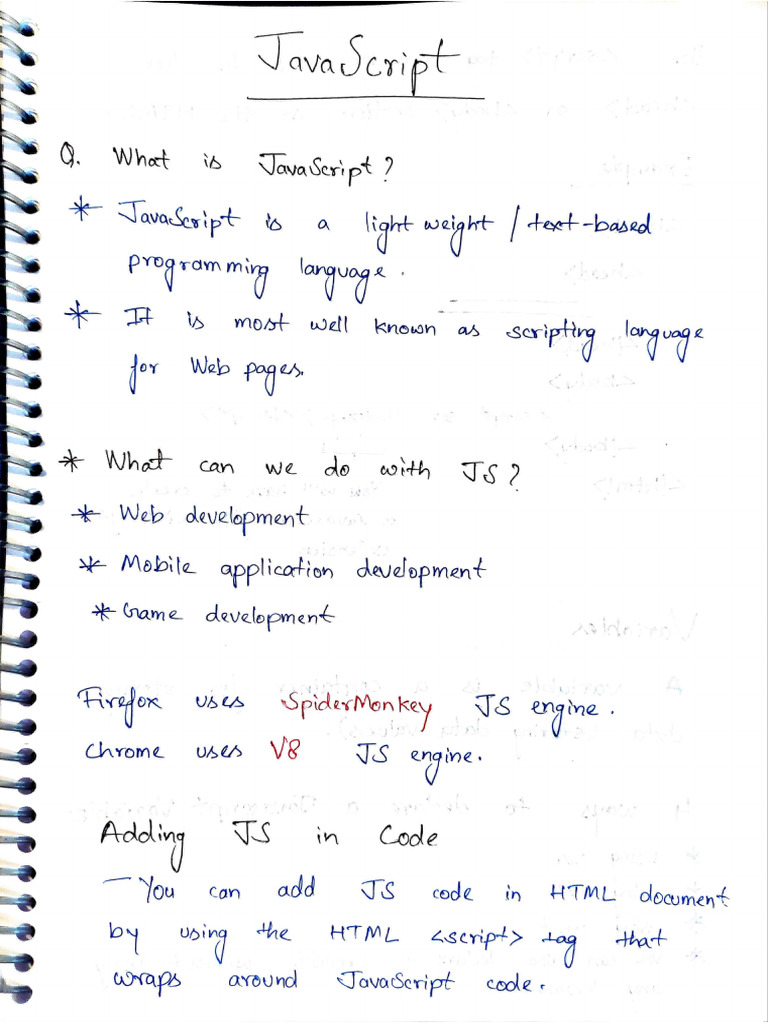 JavaScript
Q. What is JavaScript?
* JavaScript is a light weight / text-based
programming language.
* It is most well known as scripting language
for Web pages.
* What can we do with JS?
* Web development
* Mobile application development
* Game development
Firefox uses SpiderMonkey JS engine.
Chrome uses V8 JS engine.
Adding JS in Code
— You can add JS code in HTML document
by using the HTML <script> tag that
wraps around JavaScript code.